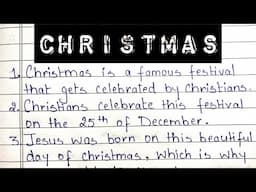 CHRISTMAS
1. Christmas is a famous festival
that gets celebrated by Christians.
2. Christians celebrate this festival
on the 25th of December.
3. Jesus was born on this beautiful
day of christmas, which is why